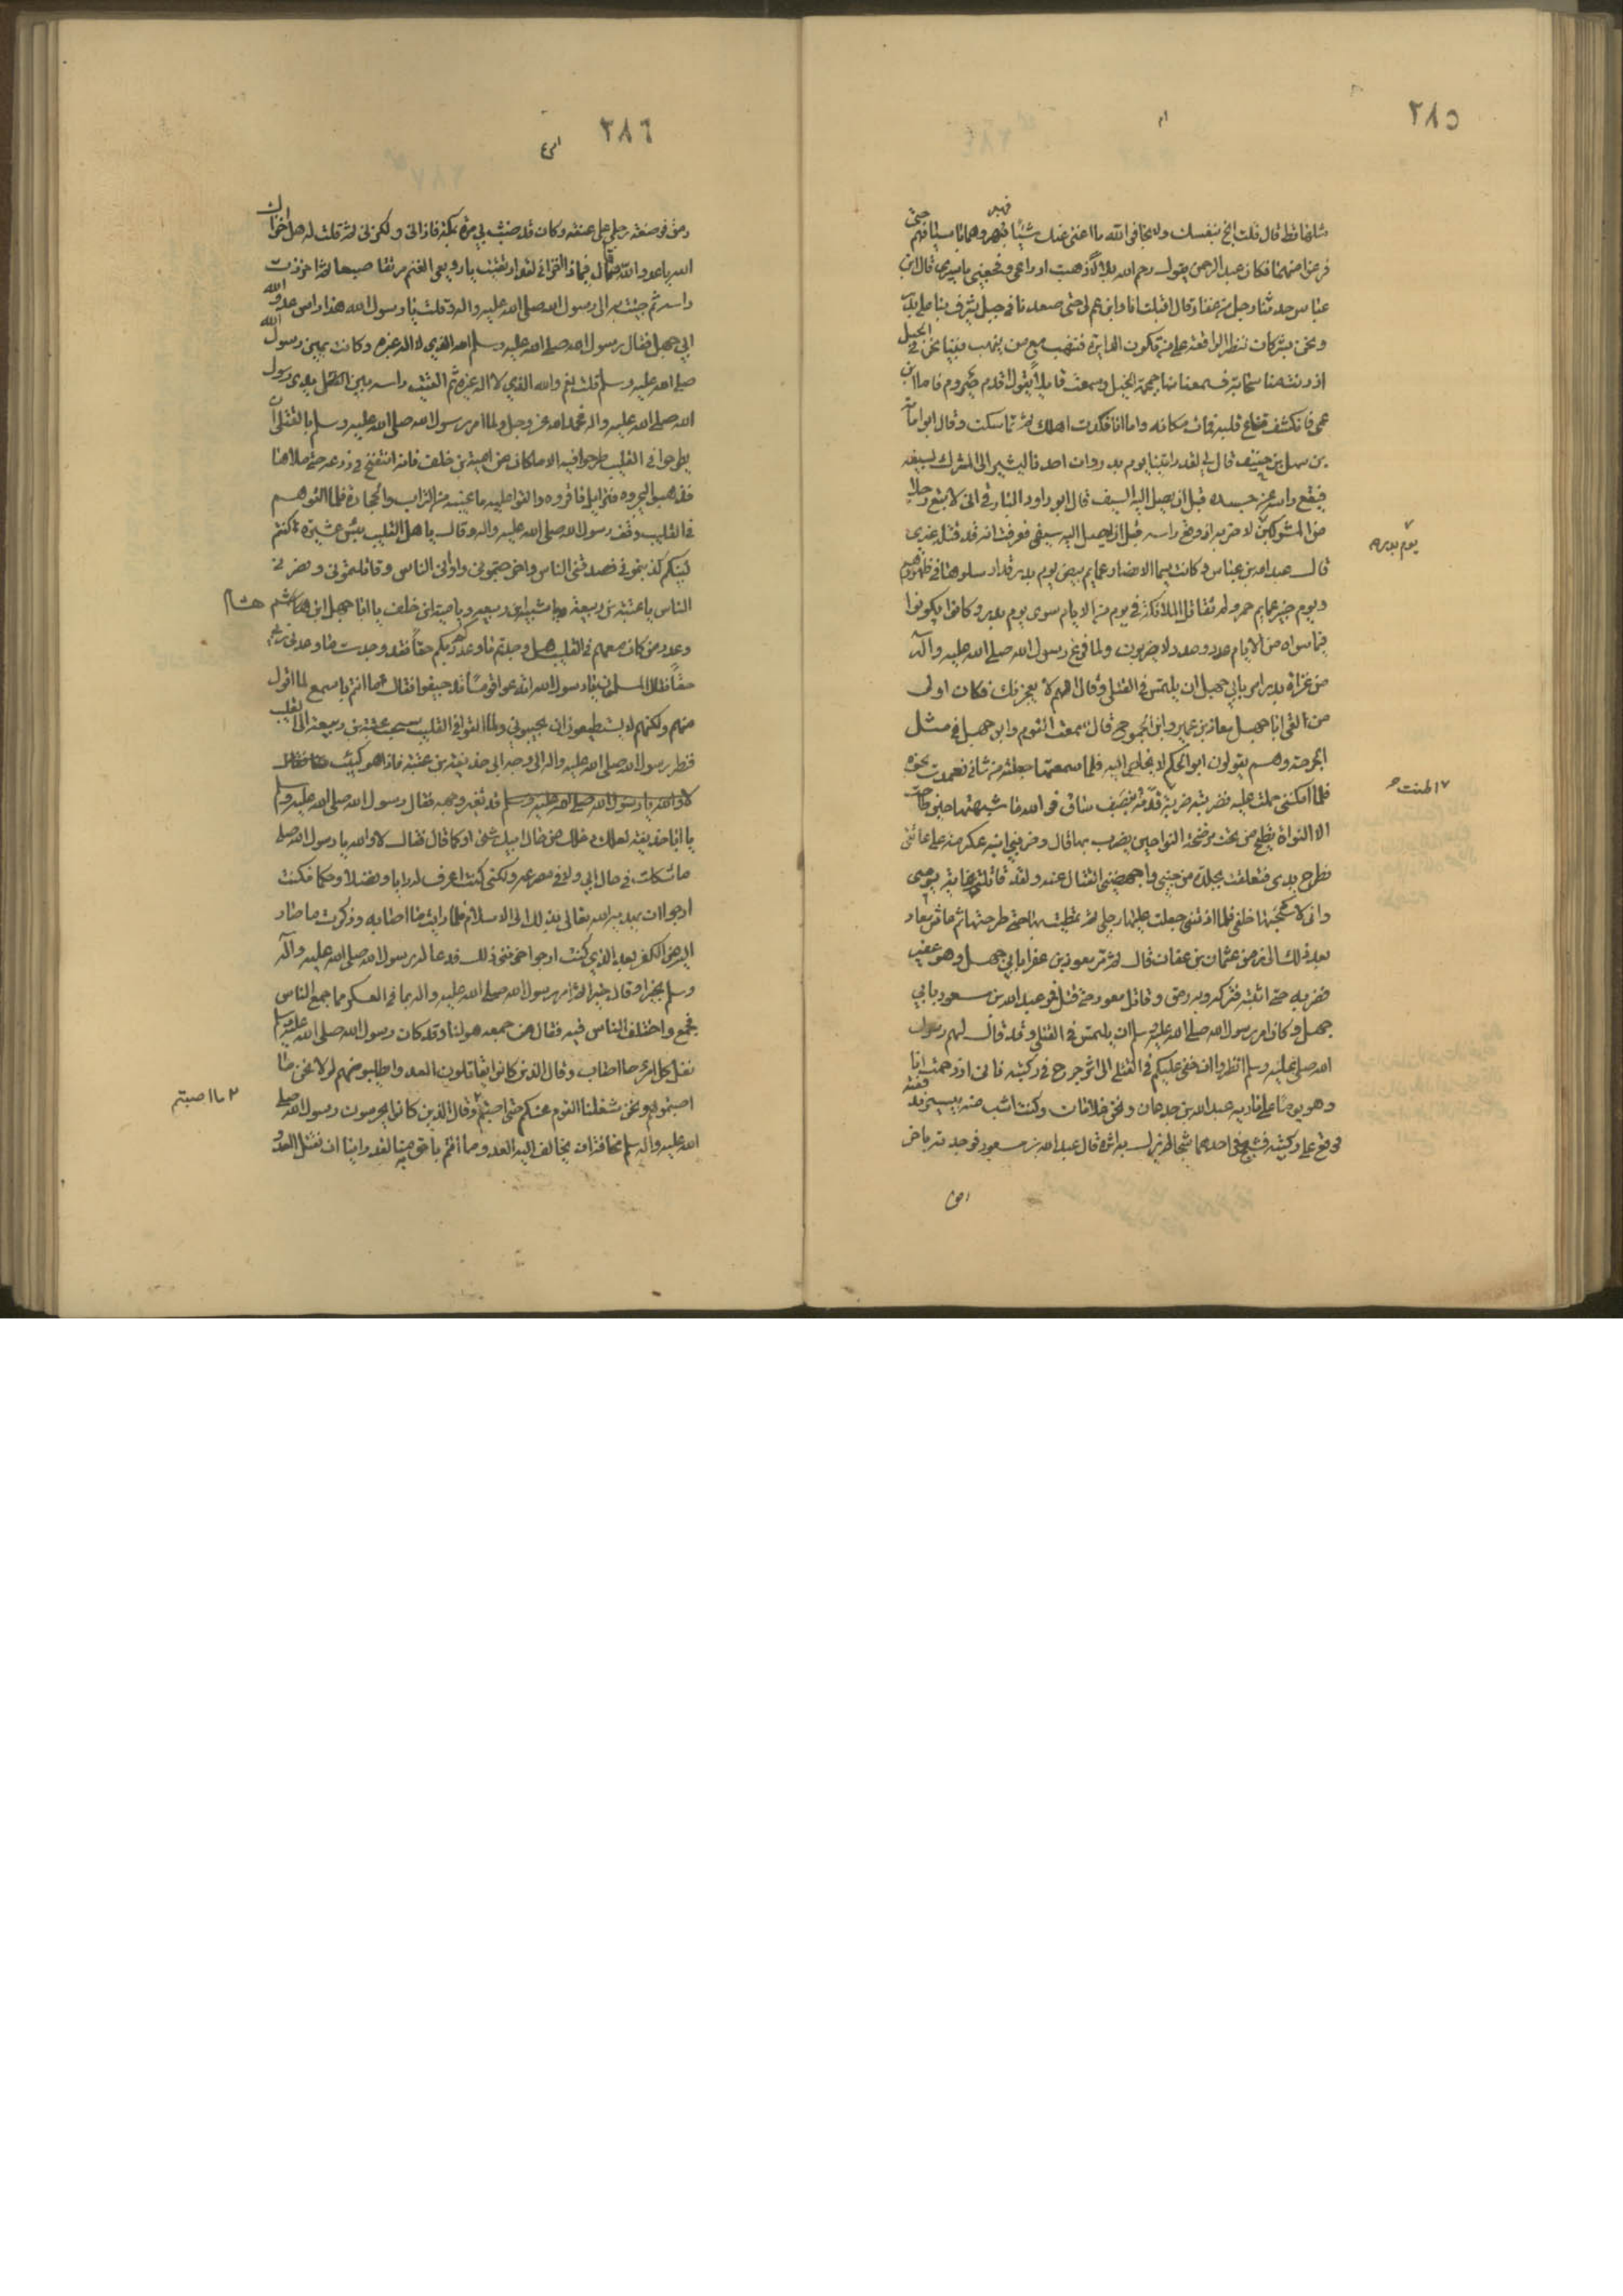 ٢٨٥
مثلها قط قال قلت انج بنفسك ولا نجا فوالله ما اغنى عنك شيئا فهبروهما باسيافهم حتى
فرغوا منهما فكان عبد الرحمن يقول رحم الله بلالا ذهبت ادراعي وفجعني باسيري قال ابن
عباس حدثنا رجل من غفار قال اقبلت انا وابن عم لي حتى صعدنا في جبل يشرف بنا على بدر
ونحن مشركان ننظر الواقعة على من تكون الدايرة فننهب مع من ينهب فبينا نحن في الجبل
اذ دنت منا سحابة فسمعنا منها حمحمة الخيل وسمعت قايلا يقول اقدم حيزوم فاما ابن
عمي فانكشف قناع قلبه فمات مكانه واما انا فكدت اهلك ثم تماسكت وقال ابو امامة
بن سهل بن حنيف قال لي لقد رايتنا يوم بدر وان احدنا ليشير الى المشرك بسيفه
فيقع راسه عن جسده قبل ان يصل اليه السيف قال ابو داود المازني اني لاتبع رجلا
من المشركين لاضربه اذ وقع راسه قبل ان يصل اليه سيفي فعرفت انه قد قتله غيري
يوم بدر
قال عبد الله بن عباس كانت سيما الانصار عمايم بيض يوم بدر قد ارسلوها في ظهورهم
ويوم خيبر عمايم حمر ولم تقاتل الملائكة في يوم من الايام سوى يوم بدر وكانوا يكونوا
فيما سواه من الايام عددا ومددا لا يضربون ولما فرغ رسول الله صلى الله عليه وآله
من غزاة بدر امر بابي جهل ان يلتمس في القتلى وقال اللهم لا يعجزنك فكان اول
من القى ابا جهل معاذ بن عمير وابن الجموح قال سمعت القوم وابو جهل في مثل
الحرجة وهم يقولون ابو الحكم لا يخلص اليه فلما سمعتها جعلته من شاني فعمدت نحوه
فلما امكنني حملت عليه فضربته ضربة قدمه بنصف ساق فوالله ما شبهتها حين طاحت
الا النواة يطيح من تحت مرضخة النوا حين يضرب بها قال وضربني ابنه عكرمة على عاتقي
فطرح يدي فتعلقت بجلدة من جنبي واجهضني القتال عنه ولقد قاتلت عامة يومي
واني لاسحبها خلفي فلما اذتني جعلت عليها رجلي ثم تمطيت بها حتى طرحتها ثم عاش معاذ
بعد ذلك الى زمن عثمان بن عفان قال ثم مر معوذ بن عفرا بابي جهل وهو عقير
فضربه حتى اثبته فتركه وبه رمق وقاتل معوذ حتى قتل فمر عبد الله بن مسعود بابي
جهل وكان امر رسول الله صلى الله عليه وسلم ان يلتمس في القتلى وقد قال لهم رسول
الله صلى الله عليه وسلم انظروا ان خفي عليكم في القتلى الى اثر جرح في ركبته فاني ازدحمت انا
وهو يوما على مادبة عبد الله بن جدعان ونحن غلامان وكنت اشب منه بيسير فدفعته
فوقع على ركبتيه فجحش في احدهما جحشا لم يزل به اثره قال عبد الله بن مسعود فوجدته باخر
٢٨٦
رمق فوضعت رجلي على عنقه وكان قد ضبث بي مرة بمكة فاذاني ولكزني ثم قلت له هل اخزاك
الله يا عدو الله فقال فبماذا اخزاني لقد ارتقيت يا رويعي الغنم مرتقا صعبا ثم احتززت
راسه ثم جيت به الى رسول الله صلى الله عليه واله وقلت يا رسول الله هذا راس عدو الله
ابي جهل فقال رسول الله صلى الله عليه وسلم الله الذي لا اله غيره وكانت يمين رسول الله
صلى الله عليه وسلم قلت نعم والله الذي لا اله غيره ثم القيت راسه بين يدي رسول
الله صلى الله عليه واله فحمد الله عز وجل ولما امر رسول الله صلى الله عليه وسلم بالقتلى ان
يطرحوا في القليب طرحوا فيه الا ما كان من امية بن خلف فانه انتفخ في درعه حتى ملاها
فذهبوا ليجروه فتزايل فاقروه والقوا عليه ما غيبه من التراب والحجارة فلما القوهم
في القليب وقف رسول الله صلى الله عليه واله وقال يا اهل القليب بئس عشيرة كنتم
لنبيكم كذبتموني فصدقني الناس واخرجتموني واواني الناس وقاتلتموني ونصرني
الناس يا عتبة بن ربيعة ويا شيبة بن ربيعة ويا امية بن خلف يا ابا جهل ابن هشام
وعدد من كان معهم في القليب هل وجدتم ما وعدكم ربكم حقا فقد وجدت ما وعدني ربي
حقا فقال المسلمون يا رسول الله اتدعوا قوما قد جيفوا فقال ما انتم باسمع لما اقول
منهم ولكنهم لا يستطيعون ان يجيبوني ولما القوا في القليب سحب عتبة بن ربيعة الى القليب
فنظر رسول الله صلى الله عليه واله الى وجه ابي حذيفة بن عتبة فاذا هو كئيب
قد تغير وجهه فقال رسول الله صلى الله عليه وسلم
يا ابا حذيفة لعلك دخلك من شان ابيك شئ او كما قال فقال لا والله يا رسول الله صلى
ما شككت في حال ابي ولا في مصرعه ولكني كنت اعرف له رايا وفضلا وحكما فكنت
ارجوا ان يهديه الله تعالى بذلك الى الاسلام فلما رايت ما اصابه وذكرت ما صار
اليه من الكفر بعد الذي كنت ارجوا حزنني ذلك فدعا له رسول الله صلى الله عليه وآله
وسلم بخير وقال خيرا ثم امر رسول الله صلى الله عليه واله بما في العسكر مما جمع الناس
فجمع واختلف الناس فيه فقال من جمعه هو لنا وقد كان رسول الله صلى الله عليه وسلم
نفل كل امرء ما اصاب وقال الذين كانوا يقاتلون العدو واطلبوهم لولا نحن ما
اصبتموه ونحن شغلنا القوم عنكم حتى اصبتم وقال الذين كانوا يحرسون رسول الله صلى
٢ ما اصبتم
الله عليه واله وسلم مخافة ان يخالف اليه العدو وما انتم باحق به منا لقد راينا ان نقتل العدو